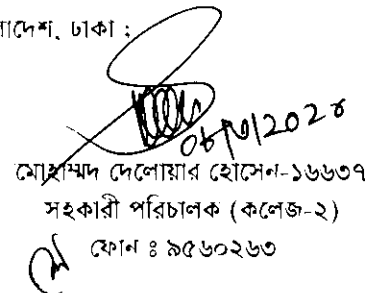 লাদেশ, ঢাকা ;
মোহাম্মদ দেলোয়ার হোসেন-১৬৬৩৭
সহকারী পরিচালক (কলেজ-২)
ফোন ঃ ৯৫৬০২৬৩